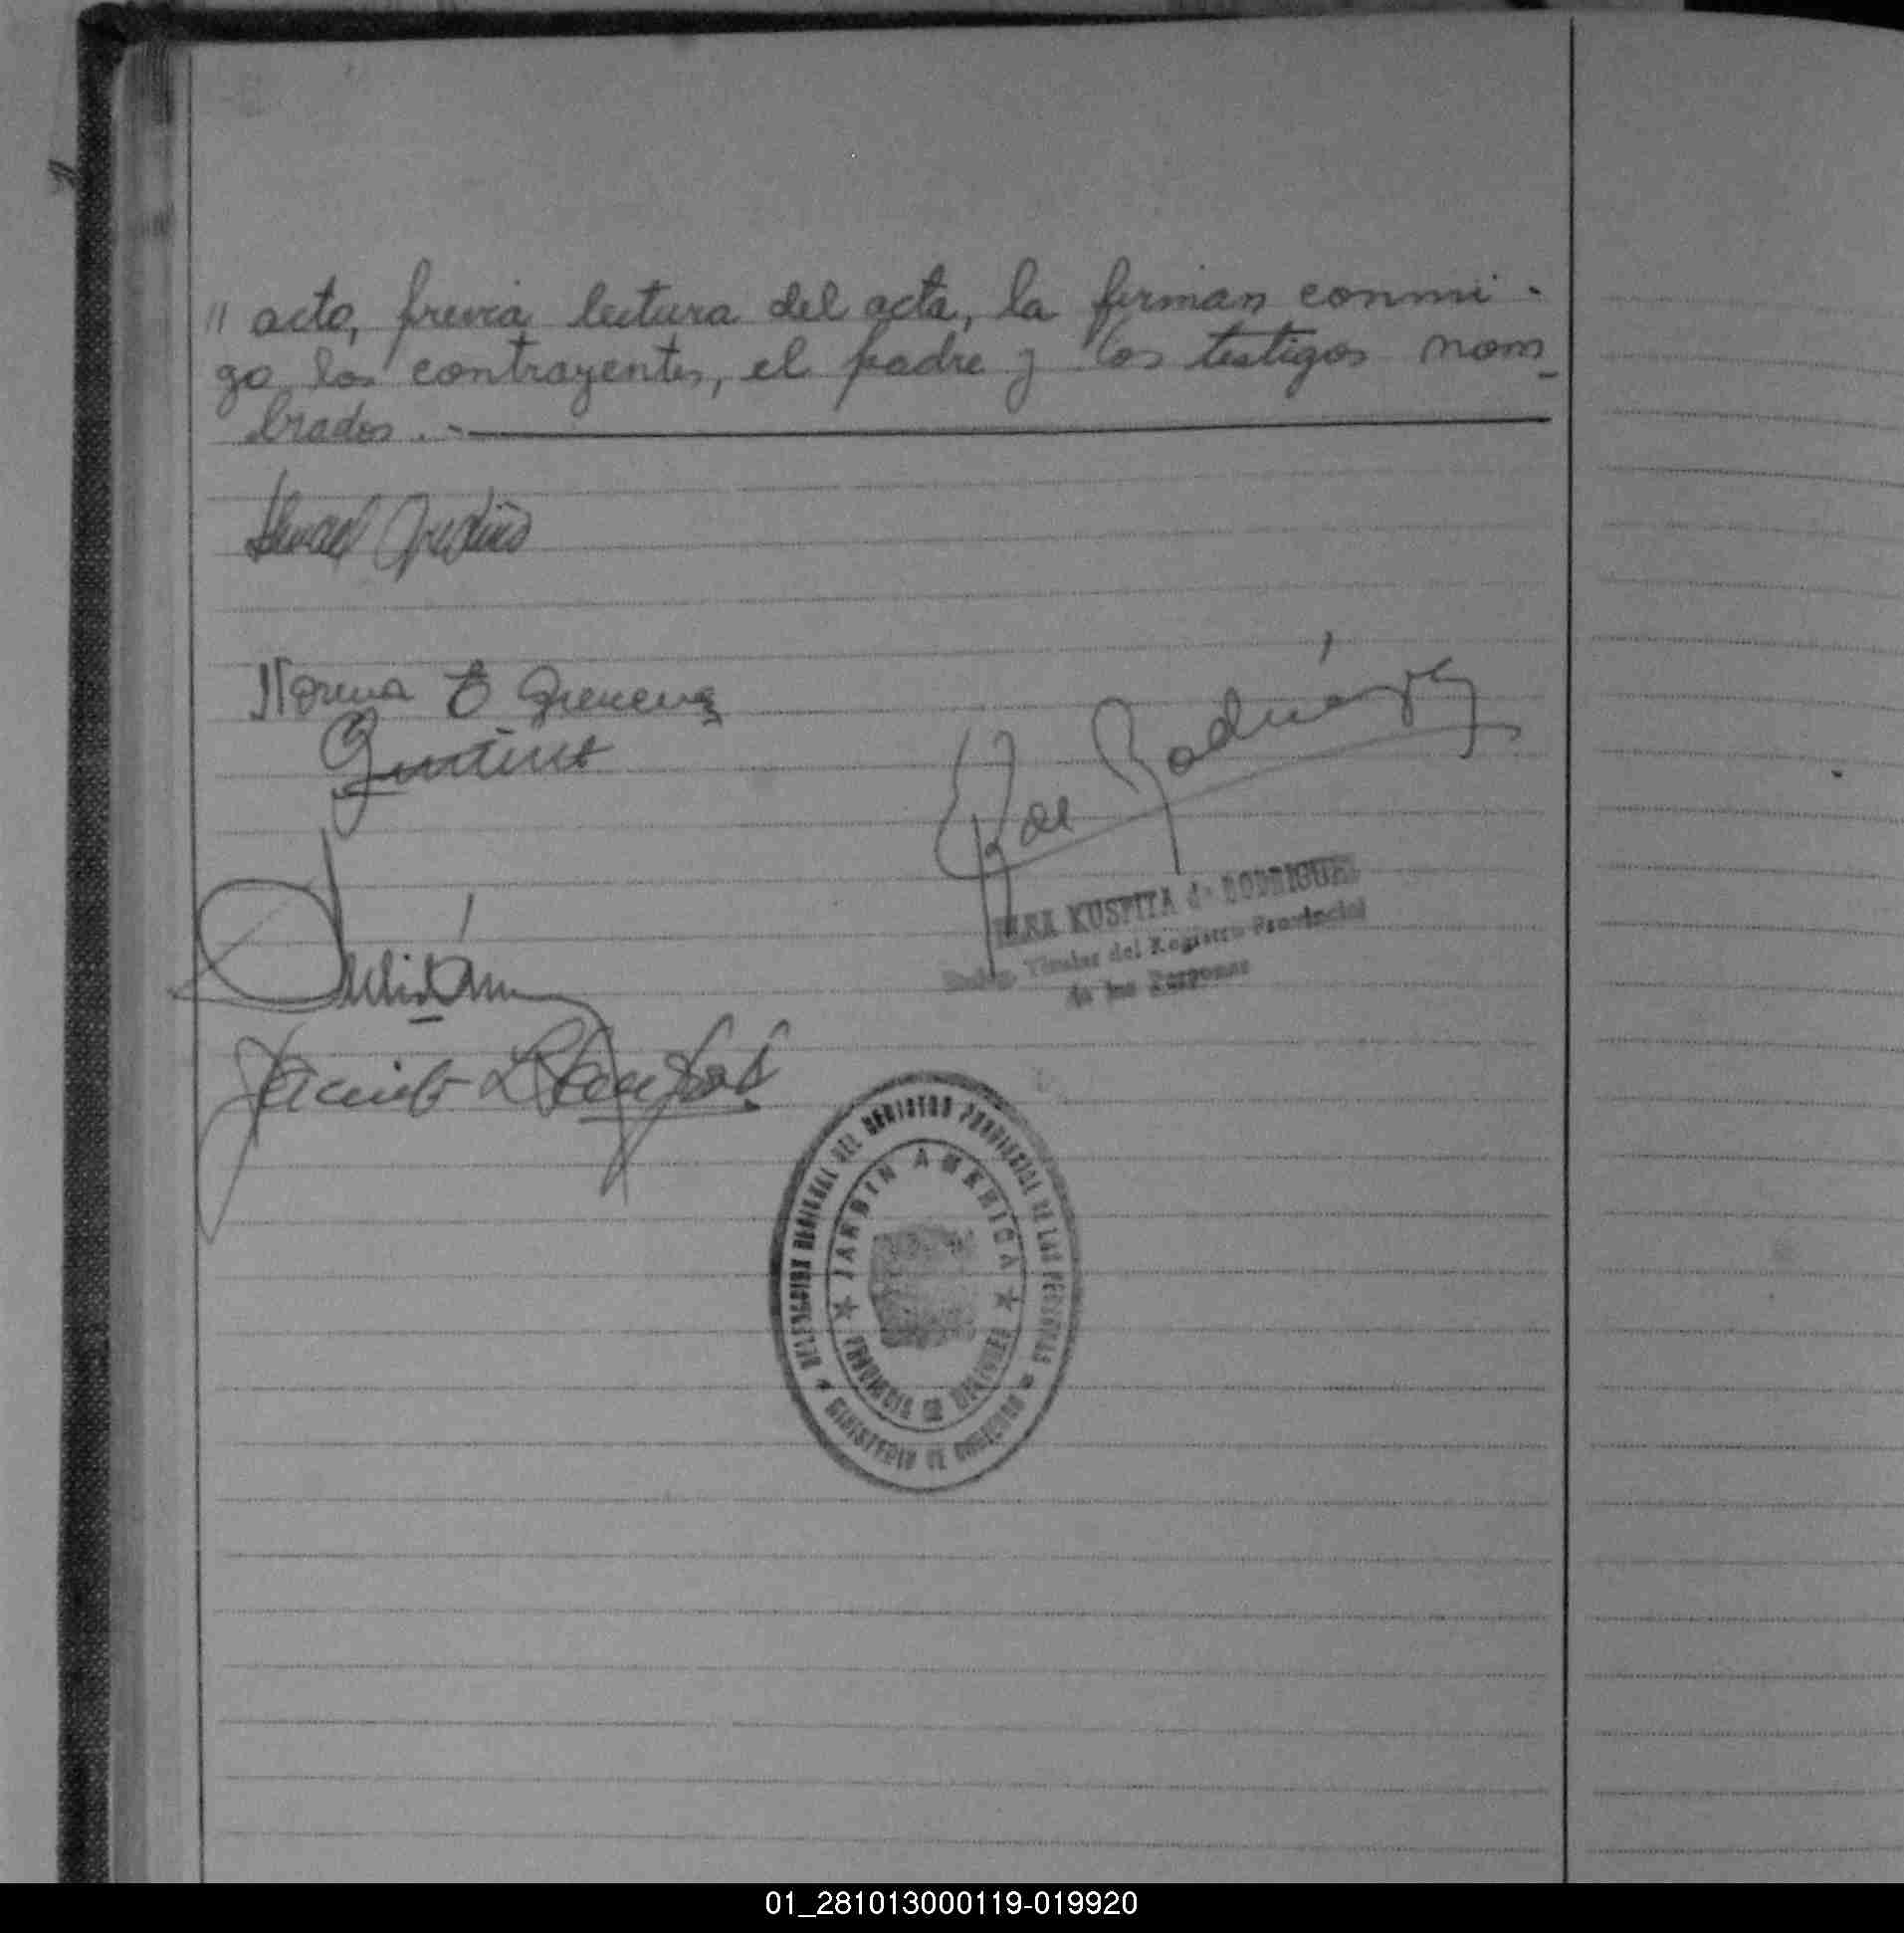 " acto, previa lectura del acta, la firman conmi -
go los contrayentes, el padre y los testigos nom_
brados. -
Norma E
Rodríguez
KUSPITA de RODRIGUEZ
Titular del Registro Provincial
de las Personas
Jacinto
DELEGACION REGIONAL DEL REGISTRO PROVINCIAL DE LAS PERSONAS
JARDIN AMERICA
PROVINCIA DE MISIONES
MINISTERIO DE GOBIERNO
01_281013000119-019920